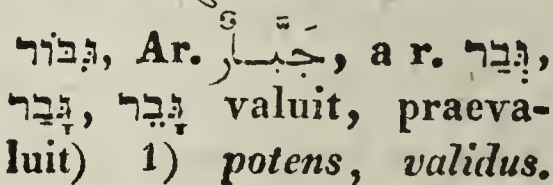 גִּבּוֹר, Ar. جَبَّارٌ, a r. גְּבַר,
גָּבַר, גָּבֵר valuit, praeva-
luit) 1) potens, validus.